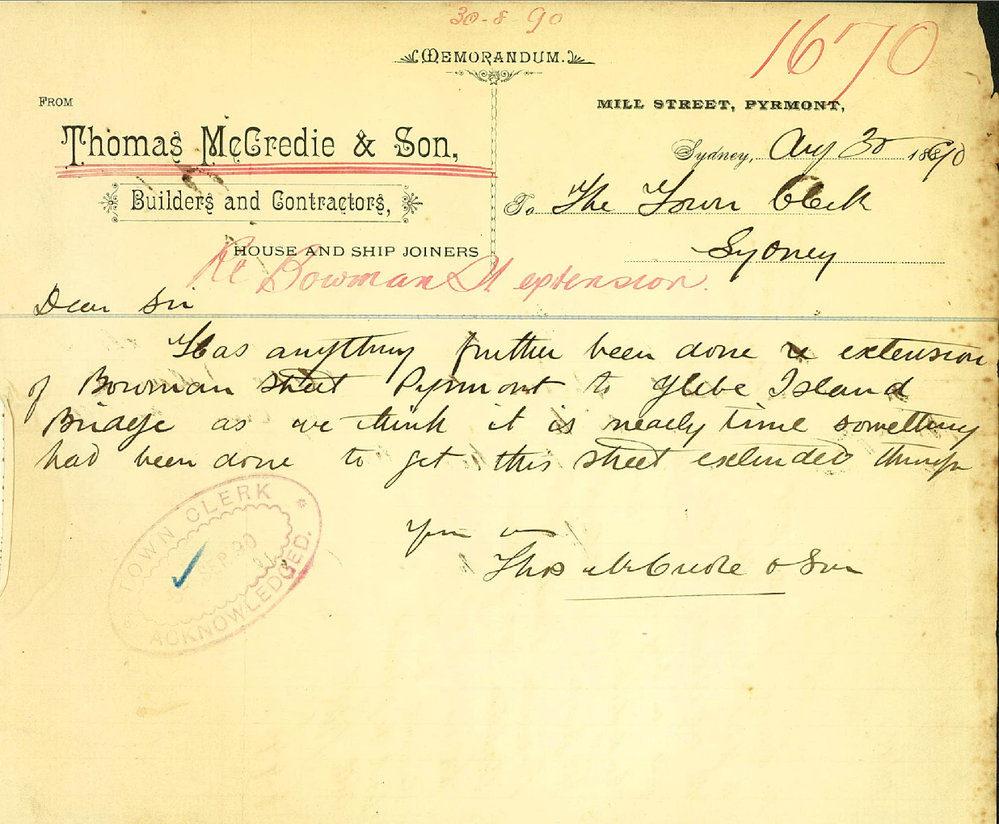 30-8 90
1670
MEMORANDUM.
FROM
Thomas McCredie & Son,
Builders and Contractors,
HOUSE AND SHIP JOINERS
MILL STREET, PYRMONT,
Sydney, Aug 30 1890
To The Town Clerk
Sydney
Re Bowman St extension.
Dear Sir
Has anything further been done re extension
of Bowman street Pyrmont to Glebe Island
Bridge as we think it is nearly time something
had been done to get this street extended through
Thos McCredie & Son
TOWN CLERK
SEP. 90
ACKNOWLEDGED.